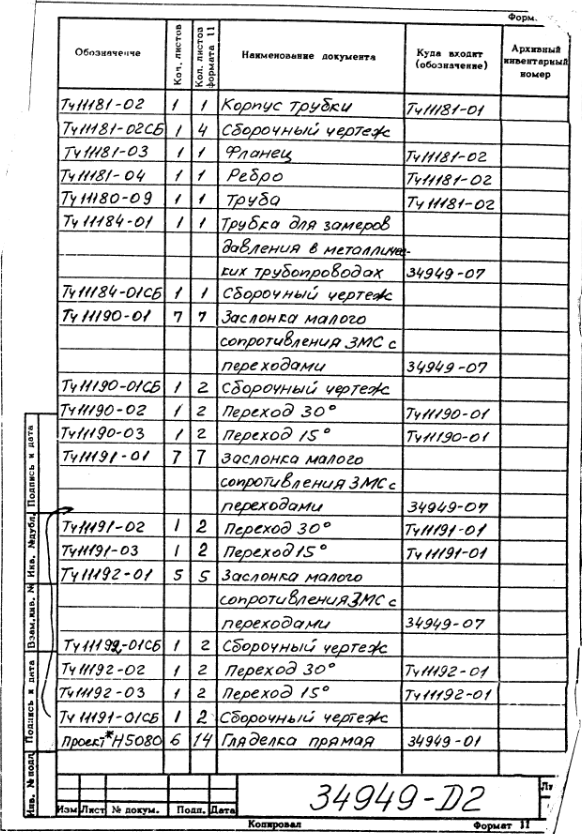 Форм.
Обозначение Кол. листов Кол. листов формата 11 Наименование документа Куда входит (обозначение) Архивный инвентарный номер
Тч11181-02 1 1 Корпус трубки Тч11181-01
Тч11181-02СБ 1 4 Сборочный чертеж
Тч11181-03 1 1 Фланец Тч11181-02
Тч11181-04 1 1 Ребро Тч11181-02
Тч11180-09 1 1 Труба Тч11181-02
Тч11184-01 1 1 Трубка для замеров
давления в металличес-
ких трубопроводах 34949-07
Тч11184-01СБ 1 1 Сборочный чертеж
Тч11190-01 7 7 Заслонка малого
сопротивления ЗМС с
переходами 34949-07
Тч11190-01СБ 1 2 Сборочный чертеж
Тч11190-02 1 2 Переход 30° Тч11190-01
Тч11190-03 1 2 Переход 15° Тч11190-01
Тч11191-01 7 7 Заслонка малого
сопротивления ЗМС с
переходами 34949-07
Тч11191-02 1 2 Переход 30° Тч11191-01
Тч11191-03 1 2 Переход 15° Тч11191-01
Тч11192-01 5 5 Заслонка малого
сопротивления ЗМС с
переходами 34949-07
Тч11192-01СБ 1 2 Сборочный чертеж
Тч11192-02 1 2 Переход 30° Тч11192-01
Тч11192-03 1 2 Переход 15° Тч11192-01
Тч11191-01СБ 1 2 Сборочный чертеж
Проект*Н5080 6 14 Гляделка прямая 34949-01
Подпись и дата
Инв. №дубл.
Взам.инв. №
Подпись и дата
Инв. №подл.
34949-D2
Ли
Изм Лист № докум. Подп. Дата
Копировал Формат 11